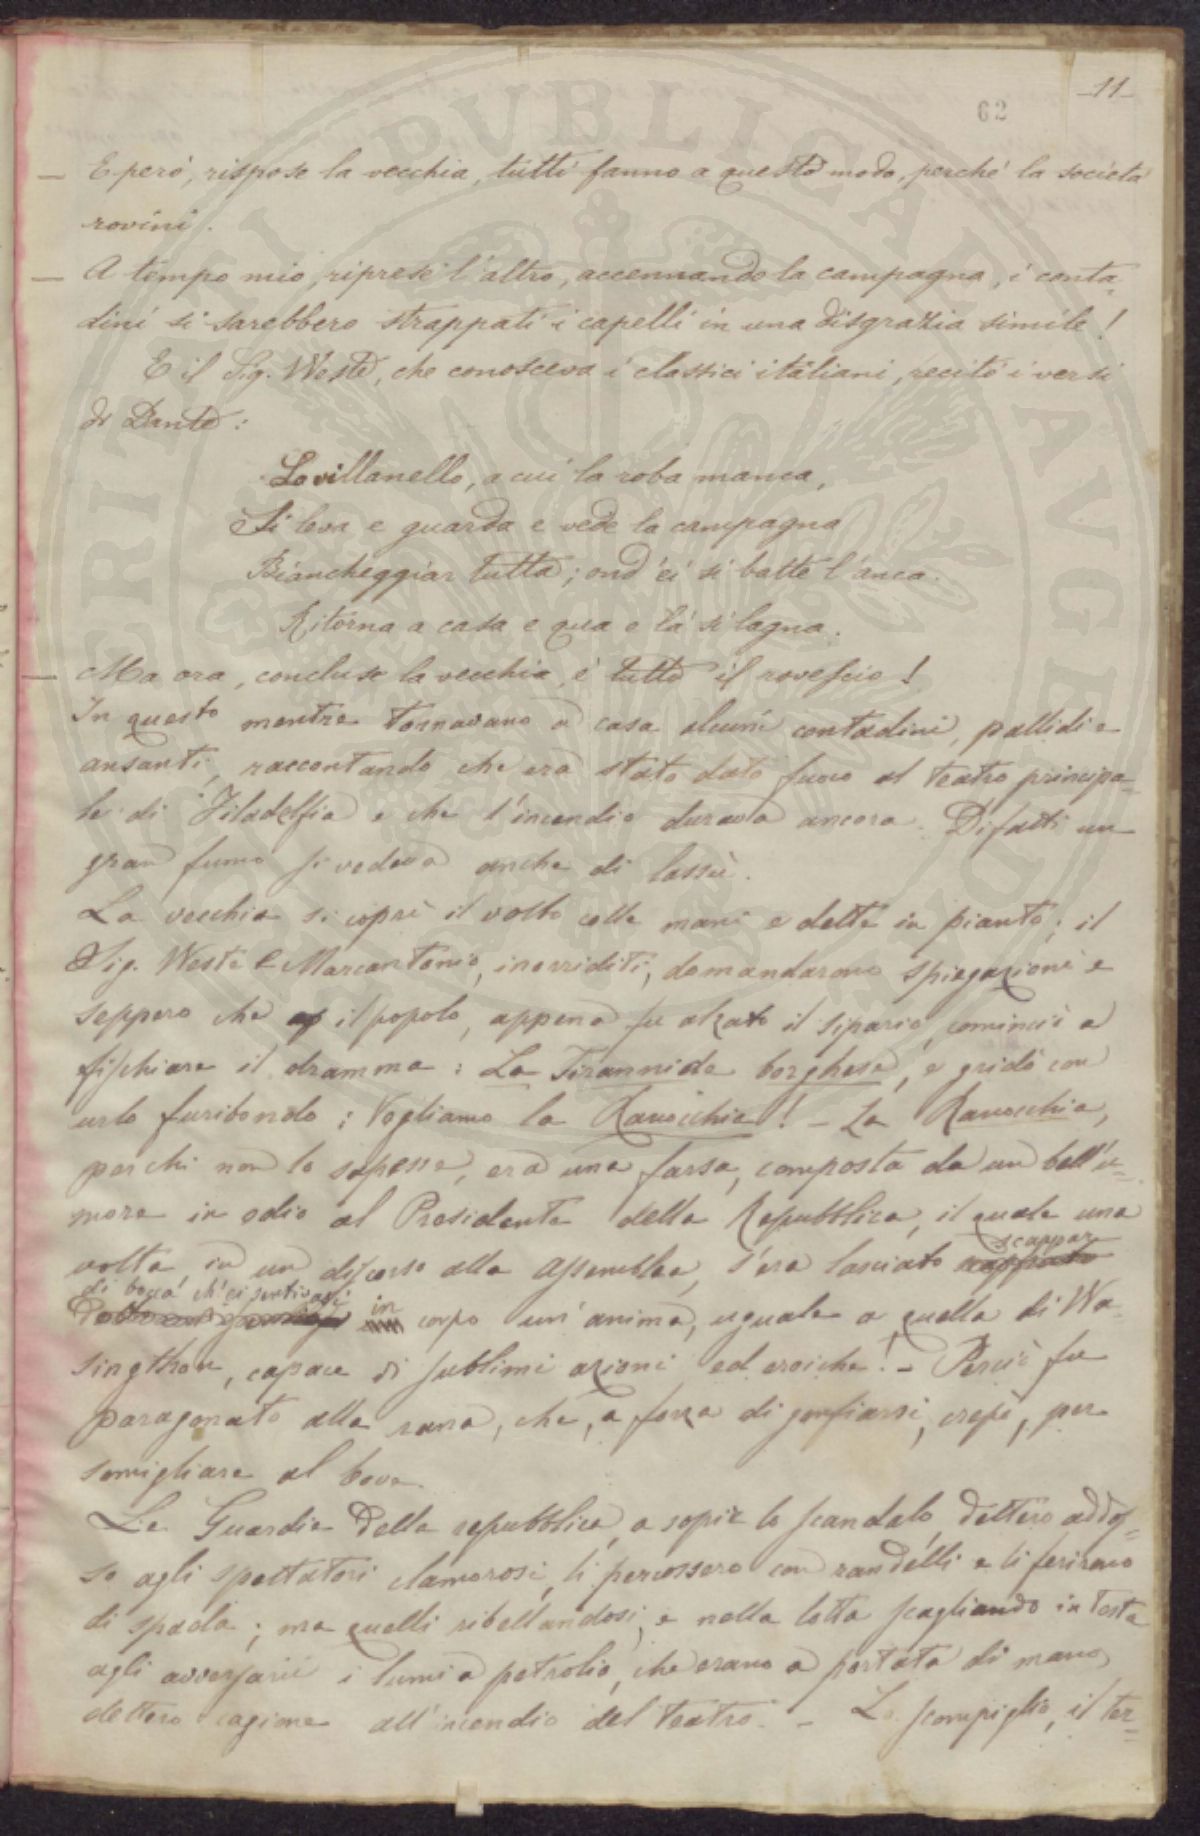 -11-
62
— E però, rispose la vecchia, tutti fanno a questo modo, perché la società
rovini.
— A tempo mio, riprese l'altro, accennando la campagna, i conta-
dini si sarebbero strappati i capelli in una disgrazia simile!
E il Sig. Weste, che conosceva i classici italiani, recitò i versi
di Dante:
Lo villanello, a cui la roba manca,
Si leva e guarda e vede la campagna
Biancheggiar tutta; ond'ei si batte l'anca.
Ritorna a casa e qua e là si lagna.
— Ma ora, concluse la vecchia, è tutto il rovescio!
In questo mentre tornavano a casa alcuni contadini, pallidi e
ansanti, raccontando che era stato dato fuoco al teatro principa=
le di Filadelfia e che l'incendio durava ancora. Difatti un
gran fumo si vedeva anche di lassù.
La vecchia si coprì il volto colle mani e dette in pianto; il
Sig. Weste e Marcantonio, inorriditi, domandarono spiegazioni e
seppero che il popolo, appena fu alzato il sipario, cominciò a
fischiare il dramma: La Tirannide borghese, e gridò con
urlo furibondo: Vogliamo la Ranocchia! - La Ranocchia,
per chi non lo sapesse, era una farsa, composta da un bell'u=
more in odio al Presidente della Repubblica, il quale una
volta, in un discorso alla Assemblea, s'era lasciato scappar
di bocca ch'ei sentivasi in corpo un'anima, uguale a quella di Wa-
singthon, capace di sublimi azioni ed eroiche! - Perciò fu
paragonato alla rana, che, a forza di gonfiarsi, crepò, per
somigliare al bove.
Le Guardie della repubblica, a sopir lo scandalo, dettero addos=
so agli spettatori clamorosi, li percossero con randelli e li ferirono
di spada; ma quelli ribellandosi, e nella lotta scagliando in testa
agli avversarii i lumi a petrolio, che erano a portata di mano,
dettero cagione all'incendio del teatro. - Lo scompiglio, il ter=
PUBLICAE